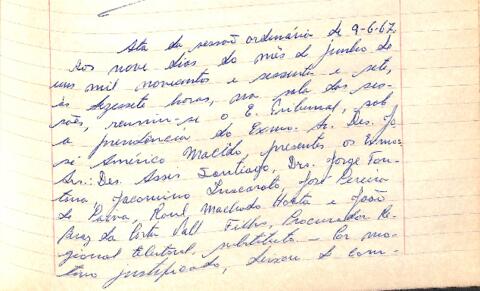 Ata da sessão ordinária de 9-6-67.
Aos nove dias do mês de junho de
um mil novecentos e sessenta e sete,
às dezessete horas, na sala das ses-
sões, reuniu-se o E. Tribunal, sob
a presidência do Exmo. Sr. Des. Jo-
sé Américo Macêdo, presentes os Exmos.
Srs.: Des. Assis Santiago, Drs. Jorge Fon-
tana, Jacomino Inacarato, José Pereira
de Paiva, Raul Machado Horta e João
Braz da Costa Val Filho, Procurador Re-
gional Eleitoral, substituto. — Por mo-
tivo justificado, deixou de com-